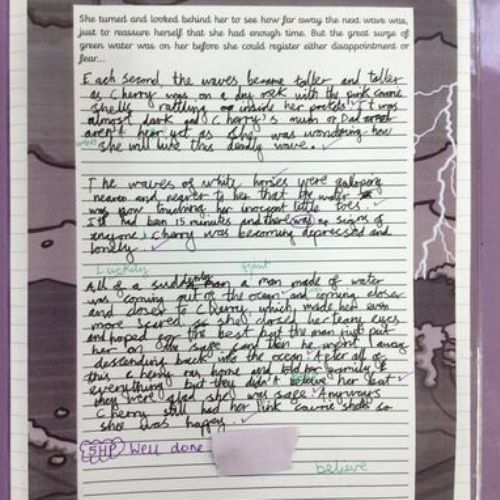 She turned and looked behind her to see how far away the next wave was,
just to reassure herself that she had enough time. But the great surge of
green water was on her before she could register either disappointment or
fear...
Each second the waves became taller and taller
as Cherry was on a dry rock with the pink cowrie
shells rattling inside her pockets. It was
almost dark and Cherry's mum or Dad
aren't her yet as she was wondering how
she will live this deadly wave.
The waves of white horses were galloping
nearer and nearer to her that the water
was now touching her innocent little toes.
It had been 15 minutes and there was no signs of
anyone. Cherry was becoming depressed and
lonely.
Luckily giant
All of a suddenly man a man made of water
was coming out of the ocean and coming closer
and closer to Cherry which made her even
more scared so she closed her teary eyes
and hoped for the best but the man just put
her on the sage and then he went away
descending back into the ocean. After all of
this Cherry ran home and told her family
everything but they didn't beleive her but
they were glad she was sage. Anyways
Cherry still had her pink cowrie shells so
she was happy.
5HP Well done
believe